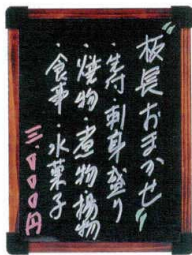 "板長おまかせ"
・刺身盛り
・焼物・煮物揚物
・食事 水菓子
三.000円